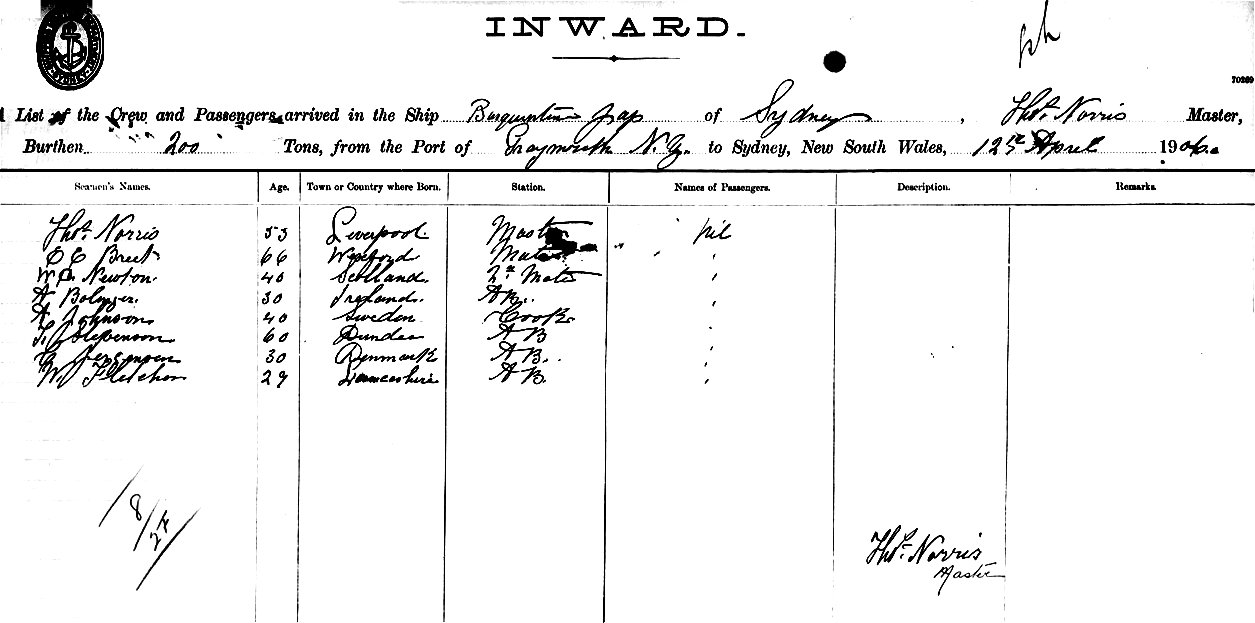 INWARD.
70269
List of the Crew and Passengers arrived in the Ship Barquentine Jap of Sydney, Thos. Norris Master,
Burthen 200 Tons, from the Port of Graymouth N.Z. to Sydney, New South Wales, 12th April 1906.
Seamen's Names. Age. Town or Country where Born. Station. Names of Passengers. Description. Remarks.
Thos. Norris 53 Liverpool. Master nil
66 Wexford Mate
W Newton. 40 Scotland. 2nd Mate
A 30 Ireland. AB.
A Johnson 40 Sweden Cook
Stevenson 60 Dundee AB
Jorgensen 30 Denmark AB.
W. Fletcher 29 Lancashire AB.
8/24
Thos. Norris
Master